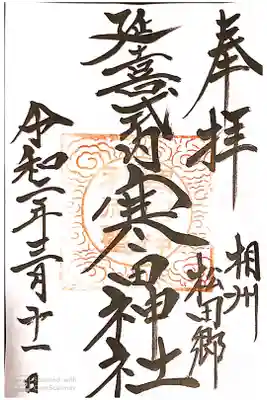 奉拝
相州
松田郷
延喜式内寒田神社
令和二年三月十一日